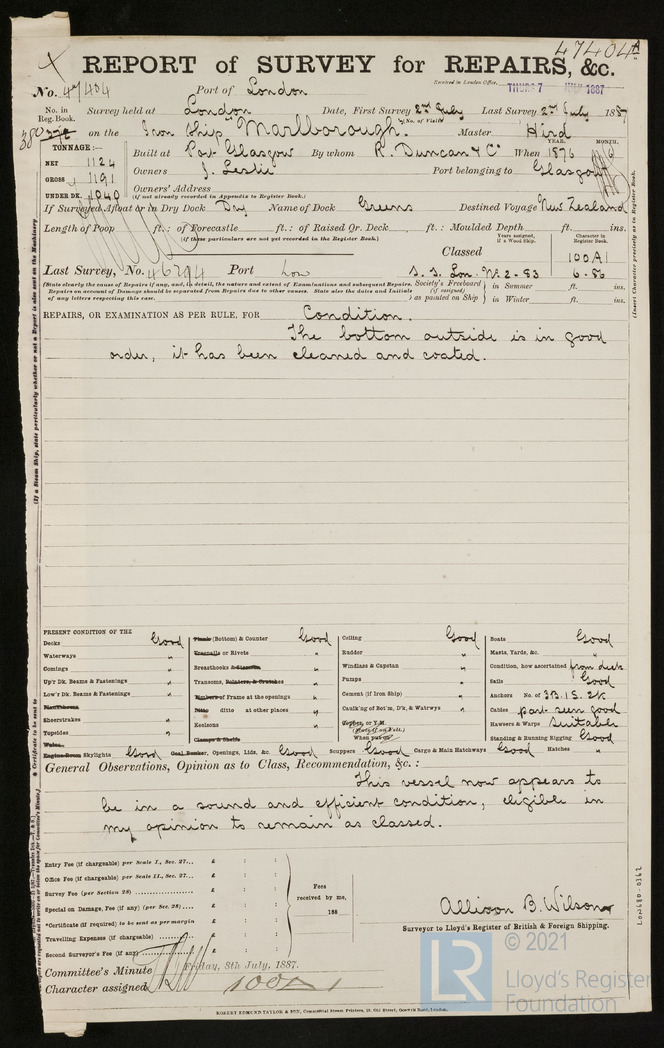 47404A
REPORT of SURVEY for REPAIRS, &c.
No. 47404 Port of London
Received in London Office, THURS 7 JULY 1887
No. in Reg. Book. Survey held at London Date, First Survey 2nd July Last Survey 2nd July 1887
(No. of Visits
380 on the Iron Ship "Marlborough." Master Hird
TONNAGE:— YEAR. MONTH.
NET 1124 Built at Port Glasgow By whom R. Duncan & Co When 1876 6
GROSS 1191 Owners J. Leslie Port belonging to Glasgow
UNDER DK. 1040 Owners' Address
(if not already recorded in Appendix to Register Book.)
If Surveyed Afloat or in Dry Dock Dry Name of Dock Greens Destined Voyage New Zealand
Length of Poop ft.: of Forecastle ft.: of Raised Qr. Deck ft.: Moulded Depth ft. ins.
(if these particulars are not yet recorded in the Register Book.)
Years assigned, if a Wood Ship. Character in Register Book.
Classed 100A1
Last Survey, No. 46294 Port Lon S.S. Lon. No. 2-83 6-86
(State clearly the cause of Repairs if any, and, in detail, the nature and extent of Examinations and subsequent Repairs. Society's Freeboard in Summer ft. ins.
Repairs on account of Damage should be separated from Repairs due to other causes. State also the dates and Initials (if assigned)
of any letters respecting this case. ) as painted on Ship in Winter ft. ins.
REPAIRS, OR EXAMINATION AS PER RULE, FOR Condition.
The bottom outside is in good
order, it has been cleaned and coated.
PRESENT CONDITION OF THE
Decks Good Planks (Bottom) & Counter Good Ceiling Good Boats Good
Waterways " Treenails or Rivets " Rudder " Masts, Yards, &c. "
Comings " Breasthooks & Stemson " Windlass & Capstan " Condition, how ascertained from deck
Up'r Dk. Beams & Fastenings " Transoms, Pointers, & Crutches " Pumps " Sails Good
Low'r Dk. Beams & Fastenings " Timbers of Frame at the openings " Cement (if Iron Ship) " Anchors No. of 3B.1S.2K
Planksheers Ditto ditto at other places " Caulk'ng of Bot'm, D'k, & Watrwys " Cables part seen good
Sheerstrakes " Keelsons " Copper, or Y.M. Hawsers & Warps Suitable
Topsides " Clamps & Shelfs When put on Standing & Running Rigging Good
Wales
Engine Room Skylights Good Coal Bunker, Openings, Lids, &c. Good Scuppers Good Cargo & Main Hatchways Good Hatches "
General Observations, Opinion as to Class, Recommendation, &c.:
This vessel now appears to
be in a sound and efficient condition, eligible in
my opinion to remain as classed.
Entry Fee (if chargeable) per Scale I., Sec. 27... £ : :
Office Fee (if chargeable) per Scale II., Sec. 27... £ : :
Survey Fee (per Section 28) £ : :
Special on Damage, Fee (if any) (per Sec. 28) £ : :
*Certificate (if required) to be sent as per margin
Travelling Expenses (if chargeable) £ : :
Second Surveyor's Fee (if any) £ : :
Fees received by me, 188
Allison B. Wilson
Surveyor to Lloyd's Register of British & Foreign Shipping.
Committee's Minute Friday, 8th July, 1887.
Character assigned 100A1
ROBERT EDMUND TAYLOR & SON, Commercial Steam Printers, 19, Old Street, Goswell Road, London.
(If a Steam Ship, state particularly whether or not a Report is also sent on the Machinery
* Certificate to be sent to
(Insert Character precisely as in Register Book.
LON680-0362
LR
© 2021
Lloyd's Register
Foundation